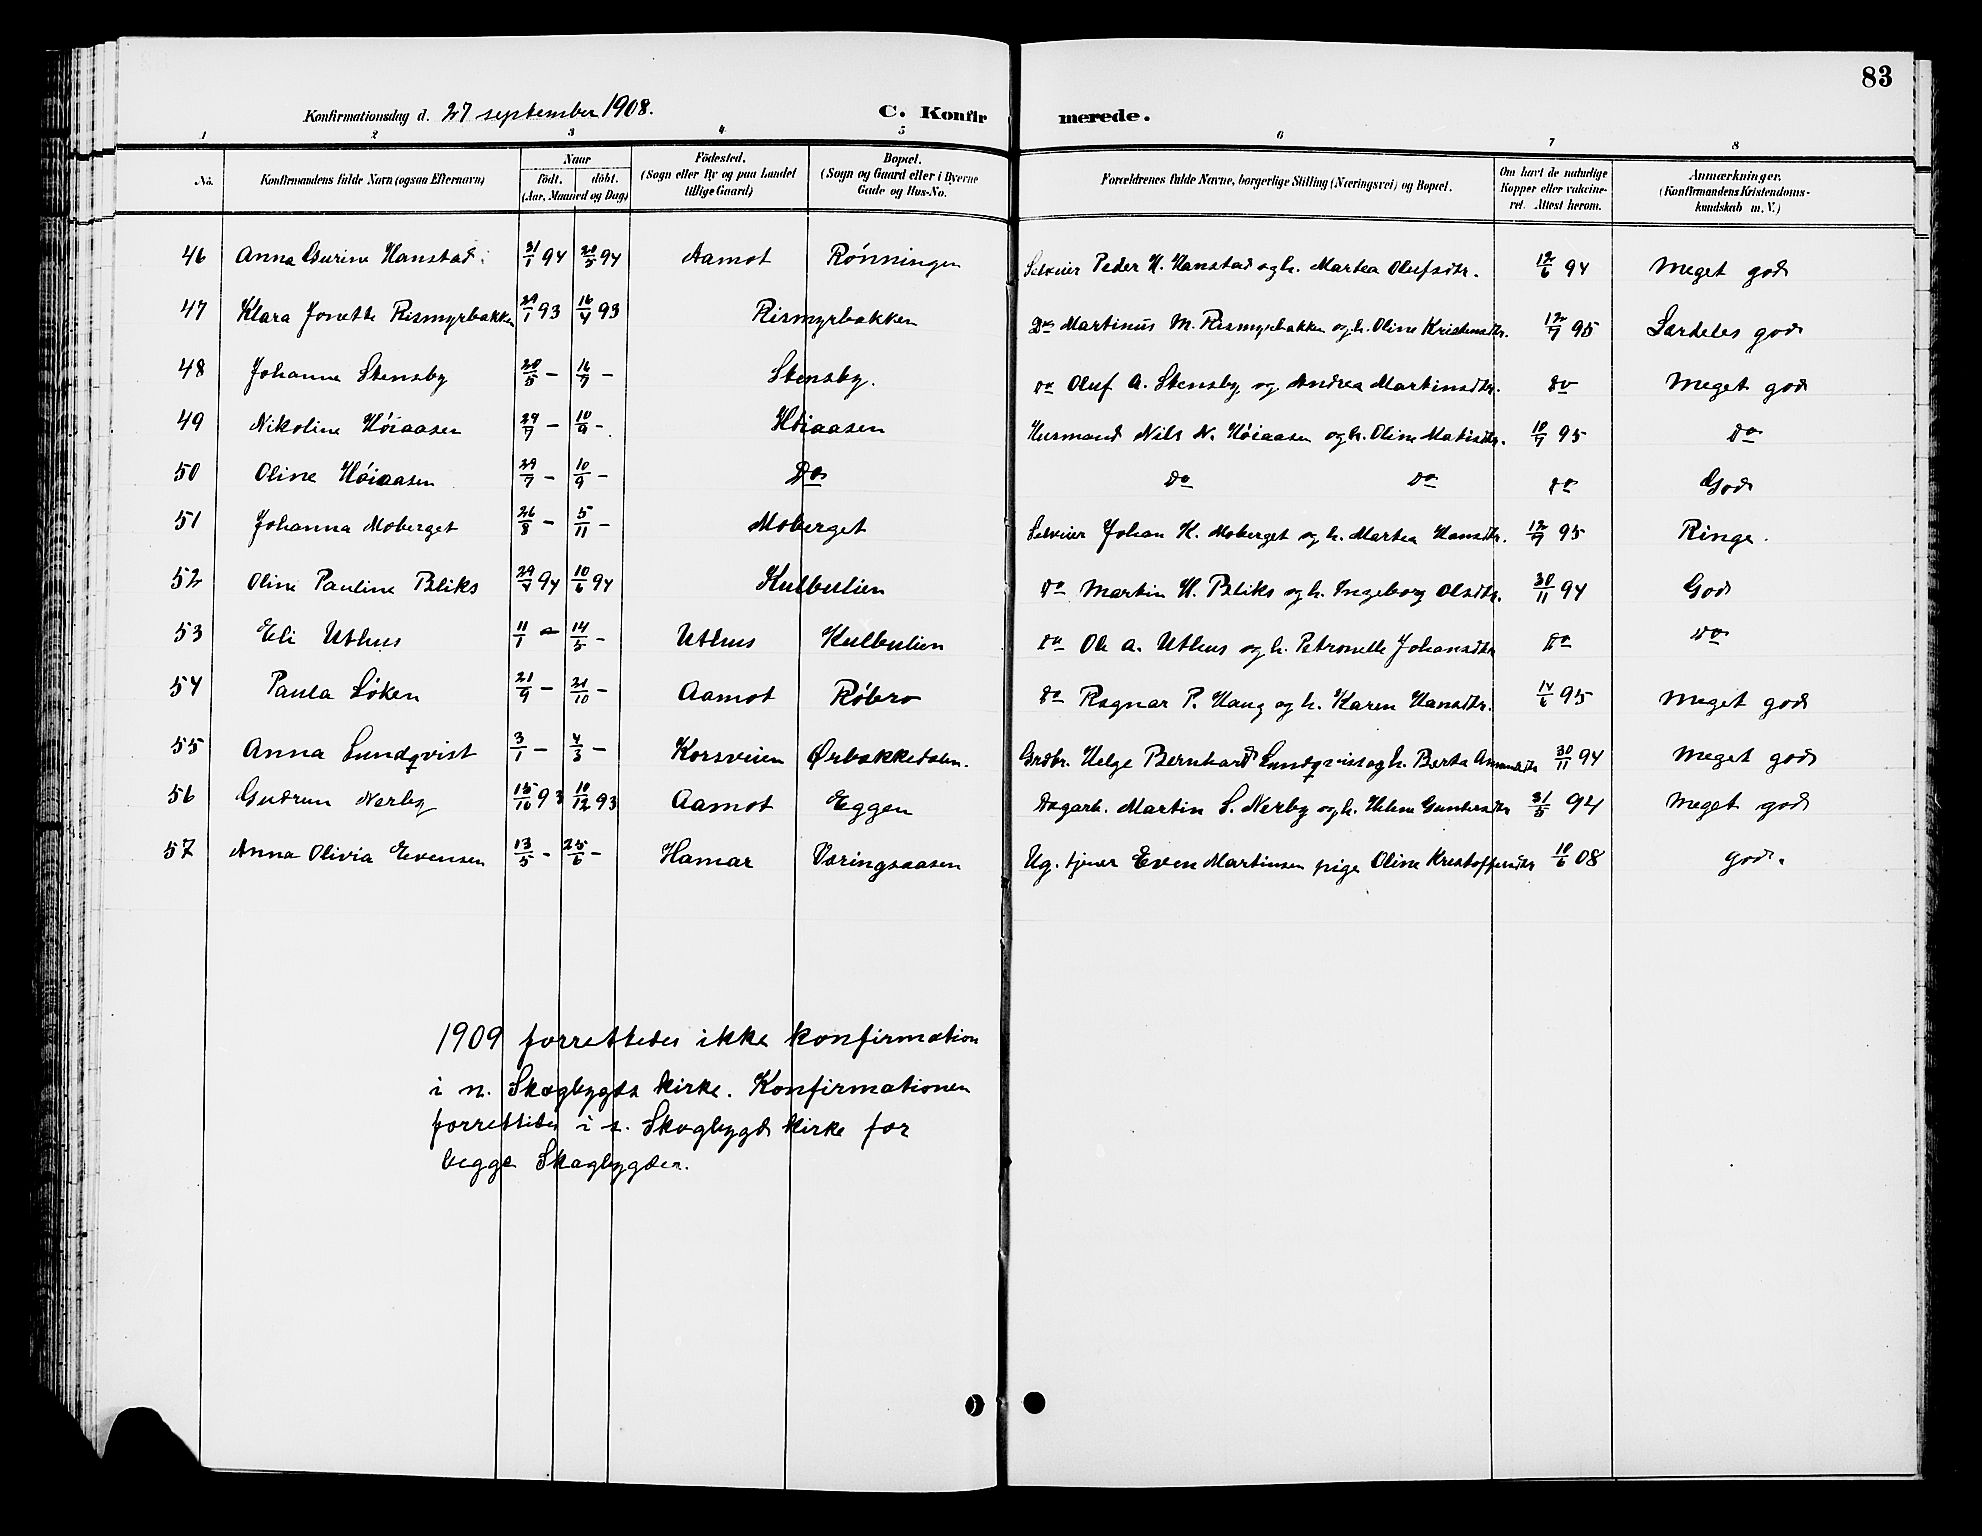 83
Konfirmationsdag d. 27 september 1908. C. Konfirmerede.
1 2 3 4 5 6 7 8
No. Konfirmandens fulde Navn (ogsaa Efternavn) Naar Født. døbt. (Aar, Maaned og Dag) Födested. (Sogn eller By og paa Landet tillige Gaard) Bopæl. (Sogn og Gaard eller i Byerne Gade og Hus-No. Forældrenes fulde Navne, borgerlige Stilling (Næringsvei) og Bopæl. Om havt de naturlige Kopper eller vakcineret. Attest herom. Anmærkninger. (Konfirmandens Kristendomskundskab m. V.)
46 Anna Gurine Hanstad. 31/1 94 20/5 94 Aamot Rønningen Selveier Peder H. Hanstad og h. Martea Olufsdtr. 12/6 94 Meget god
47 Klara Jonette Rismyrbakken 29/1 93 16/4 93 Rismyrbakken Do Martinus M. Rismyrbakken og h. Oline Kristensdtr. 12/7 95 Særdeles god
48 Johanne Stensby 20/5 - 16/7 - Stensby. do Oluf A. Stensby og Andrea Martinsdtr. do Meget god
49 Nikoline Høiaasen 29/7 - 10/9 - Høiaasen Husmand Nils N. Høiaasen og h. Oline Matisdtr. 10/7 95 do
50 Oline Høiaasen 29/7 - 10/9 - Do do do do God
51 Johanna Moberget 26/8 - 5/11 - Moberget Selveier Johan K. Moberget og h. Martea Hansdtr. 12/7 95 Ringe.
52 Oline Pauline Bliks 29/4 94 10/6 94 Kulbulien do Martin H. Bliks og h. Ingeborg Olsdtr. 30/11 94 God
53 Eli Uthus 11/1 - 14/5 - Uthus Kulbulien do Ole A. Uthus og h. Petronelle Johansdtr do do
54 Paula Løken 21/9 - 21/10 - Aamot Røbro do Ragnar P. Haug og h. Karen Hansdtr. 14/6 95 Meget god
55 Anna Lundqvist 3/1 - 4/3 - Korsveien Ørbakkedalen. Grdbr. Helge Bernhard Lundqvist og h. Berte Amundsdtr 30/11 94 Meget god
56 Gudrun Nerby 15/10 93 10/12 93 Aamot Eggen Dagarb. Martin S. Nerby og h. Helene Gundersdtr 31/5 94 Meget god
57 Anna Olivia Evensen 13/5 - 25/6 - Hamar Væringsaasen Ug. tjener Even Martinsen pige Oline Kristoffersdtr 10/6 08 god.
1909 forrettedes ikke konfirmation
i n. Skogbygda kirke. Konfirmationen
forrettedes i s. Skogbygd kirke for
begge Skogbygder.